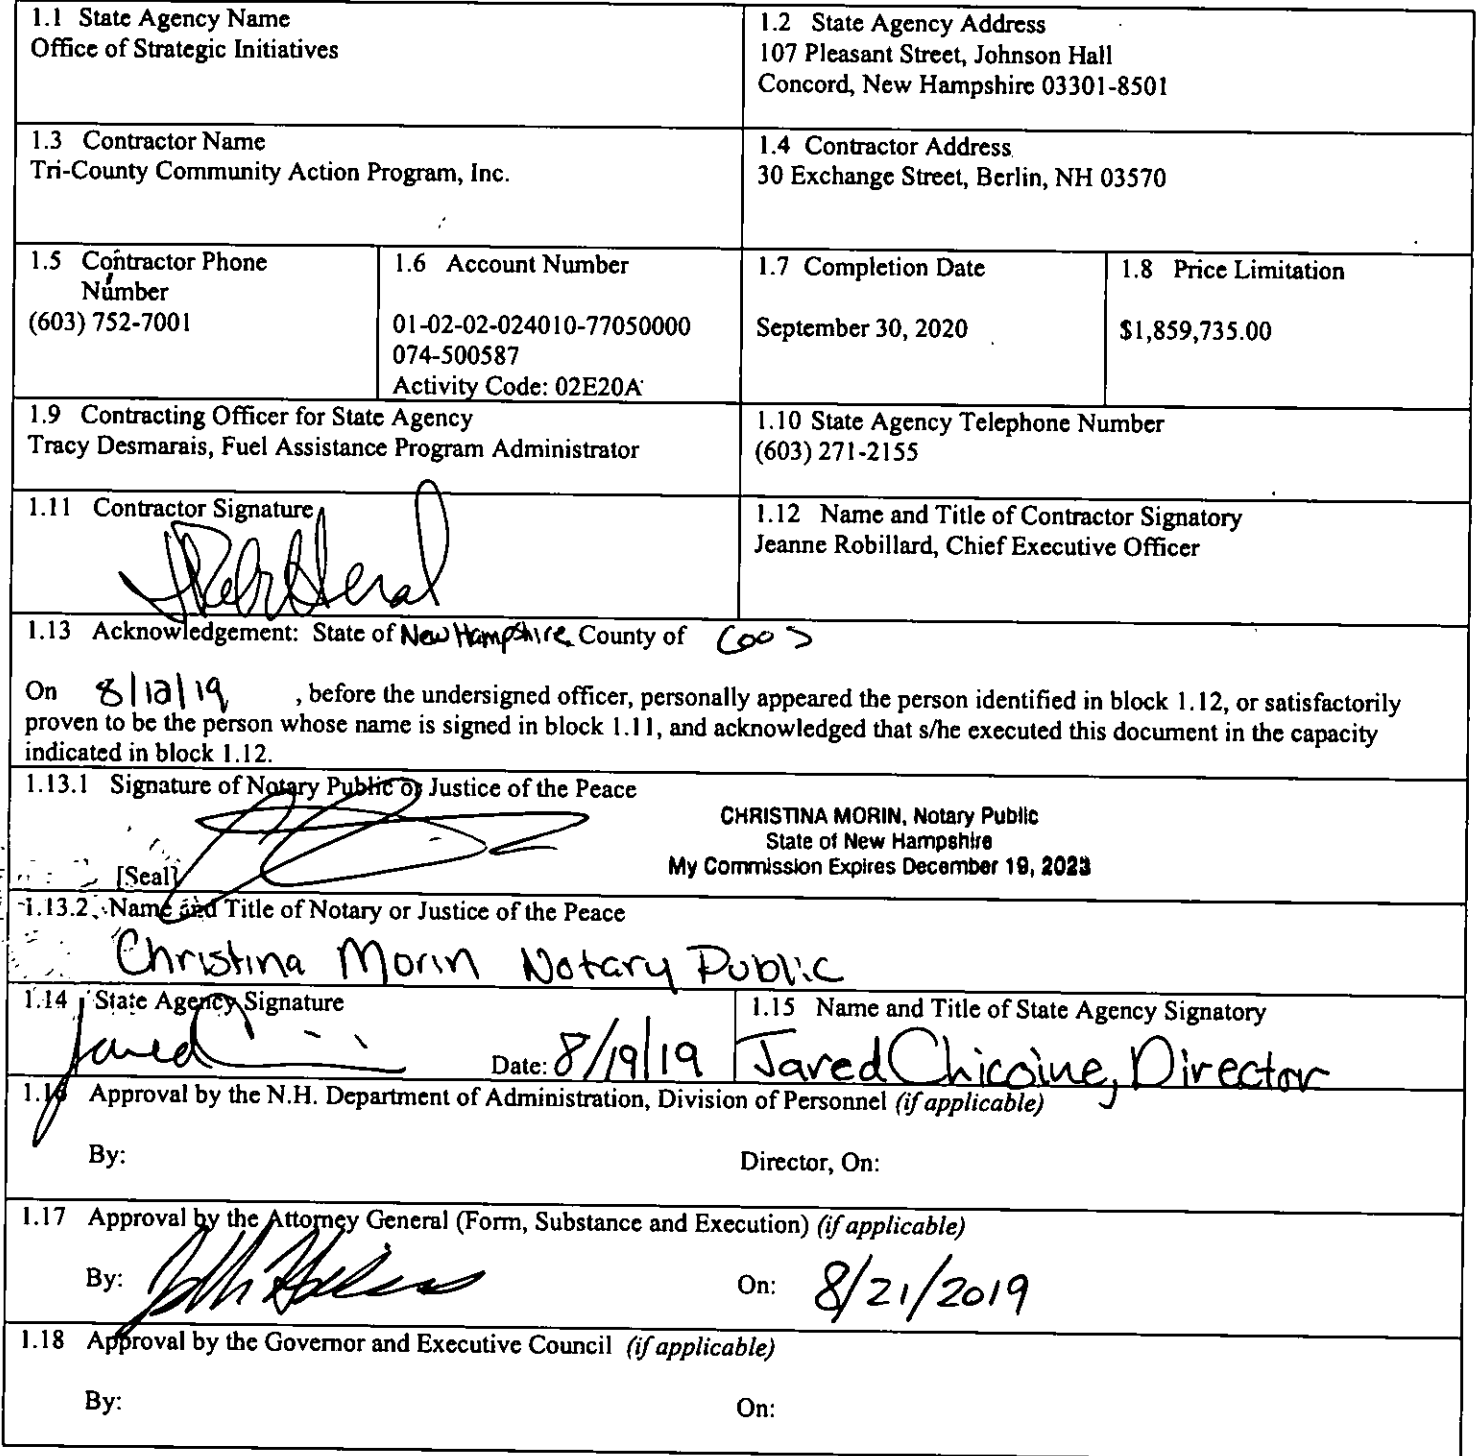 1.1 State Agency Name
Office of Strategic Initiatives
1.2 State Agency Address
107 Pleasant Street, Johnson Hall
Concord, New Hampshire 03301-8501
1.3 Contractor Name
Tri-County Community Action Program, Inc.
1.4 Contractor Address
30 Exchange Street, Berlin, NH 03570
1.5 Contractor Phone
Number
(603) 752-7001
1.6 Account Number
01-02-02-024010-77050000
074-500587
Activity Code: 02E20A
1.7 Completion Date
September 30, 2020
1.8 Price Limitation
$1,859,735.00
1.9 Contracting Officer for State Agency
Tracy Desmarais, Fuel Assistance Program Administrator
1.10 State Agency Telephone Number
(603) 271-2155
1.11 Contractor Signature
1.12 Name and Title of Contractor Signatory
Jeanne Robillard, Chief Executive Officer
1.13 Acknowledgement: State of New Hampshire County of Coos
On 8/12/19 , before the undersigned officer, personally appeared the person identified in block 1.12, or satisfactorily
proven to be the person whose name is signed in block 1.11, and acknowledged that s/he executed this document in the capacity
indicated in block 1.12.
1.13.1 Signature of Notary Public or Justice of the Peace
CHRISTINA MORIN, Notary Public
State of New Hampshire
My Commission Expires December 19, 2023
[Seal]
1.13.2 Name and Title of Notary or Justice of the Peace
Christina Morin Notary Public
1.14 State Agency Signature
Jared
Date: 8/19/19
1.15 Name and Title of State Agency Signatory
Jared Chicoine, Director
1.16 Approval by the N.H. Department of Administration, Division of Personnel (if applicable)
By:
Director, On:
1.17 Approval by the Attorney General (Form, Substance and Execution) (if applicable)
By:
On: 8/21/2019
1.18 Approval by the Governor and Executive Council (if applicable)
By:
On: